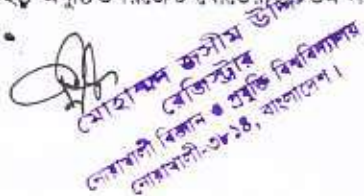 মোহাম্মদ জসীম উদ্দিন
রেজিস্ট্রার
নোয়াখালী বিজ্ঞান ও প্রযুক্তি বিশ্ববিদ্যালয়
নোয়াখালী-৩৮১৪, বাংলাদেশ।